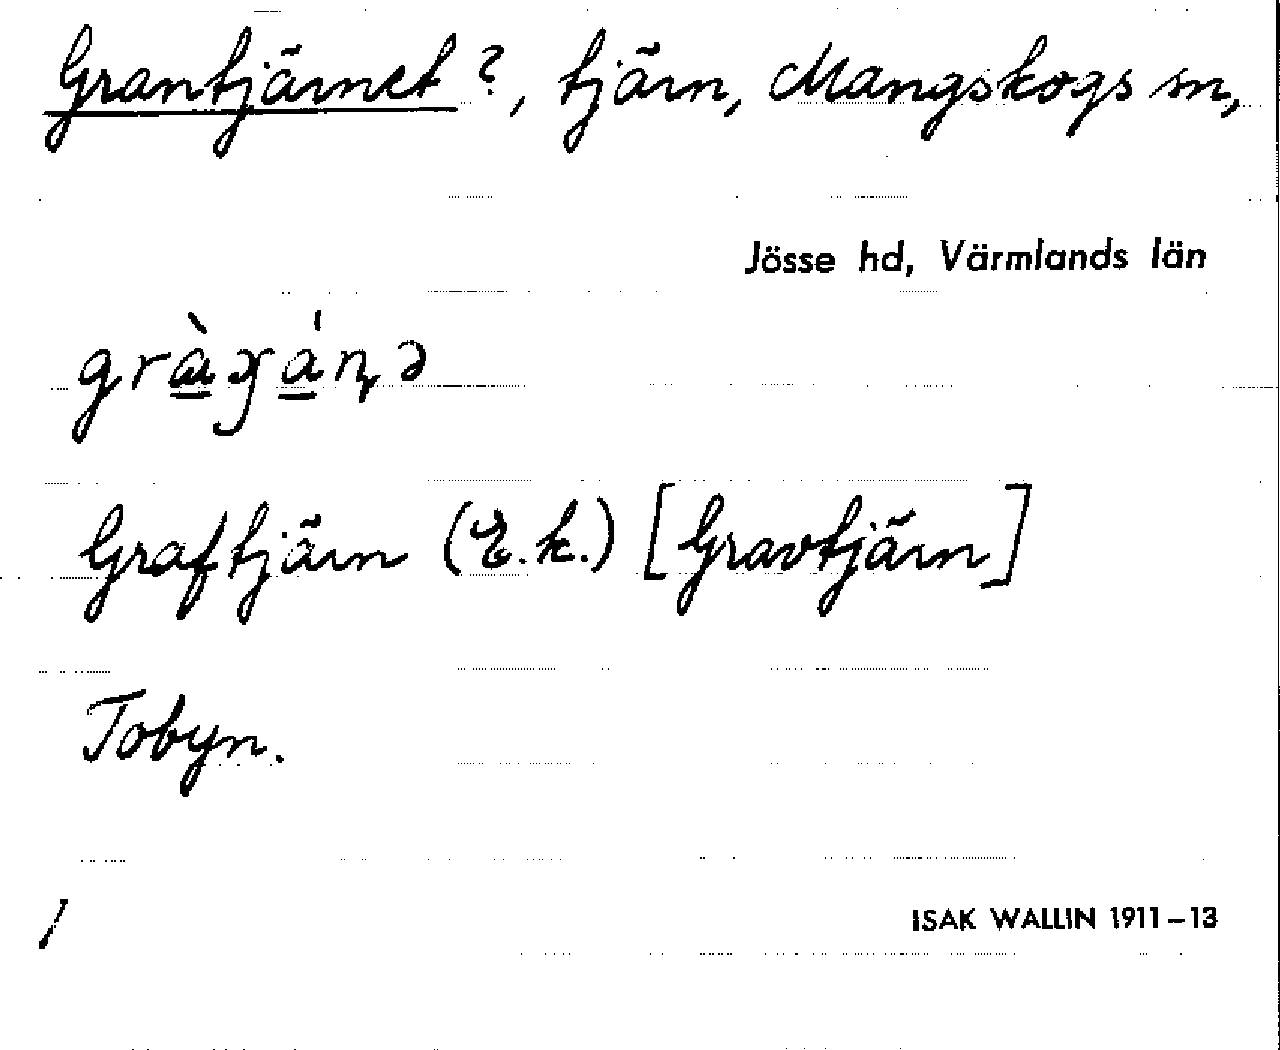 Grantjärnet?, tjärn, Mangskogs sn,
Jösse hd, Värmlands län
Graftjärn (E.k.) [Gravtjärn]
Tobyn.
/
ISAK WALLIN 1911–13